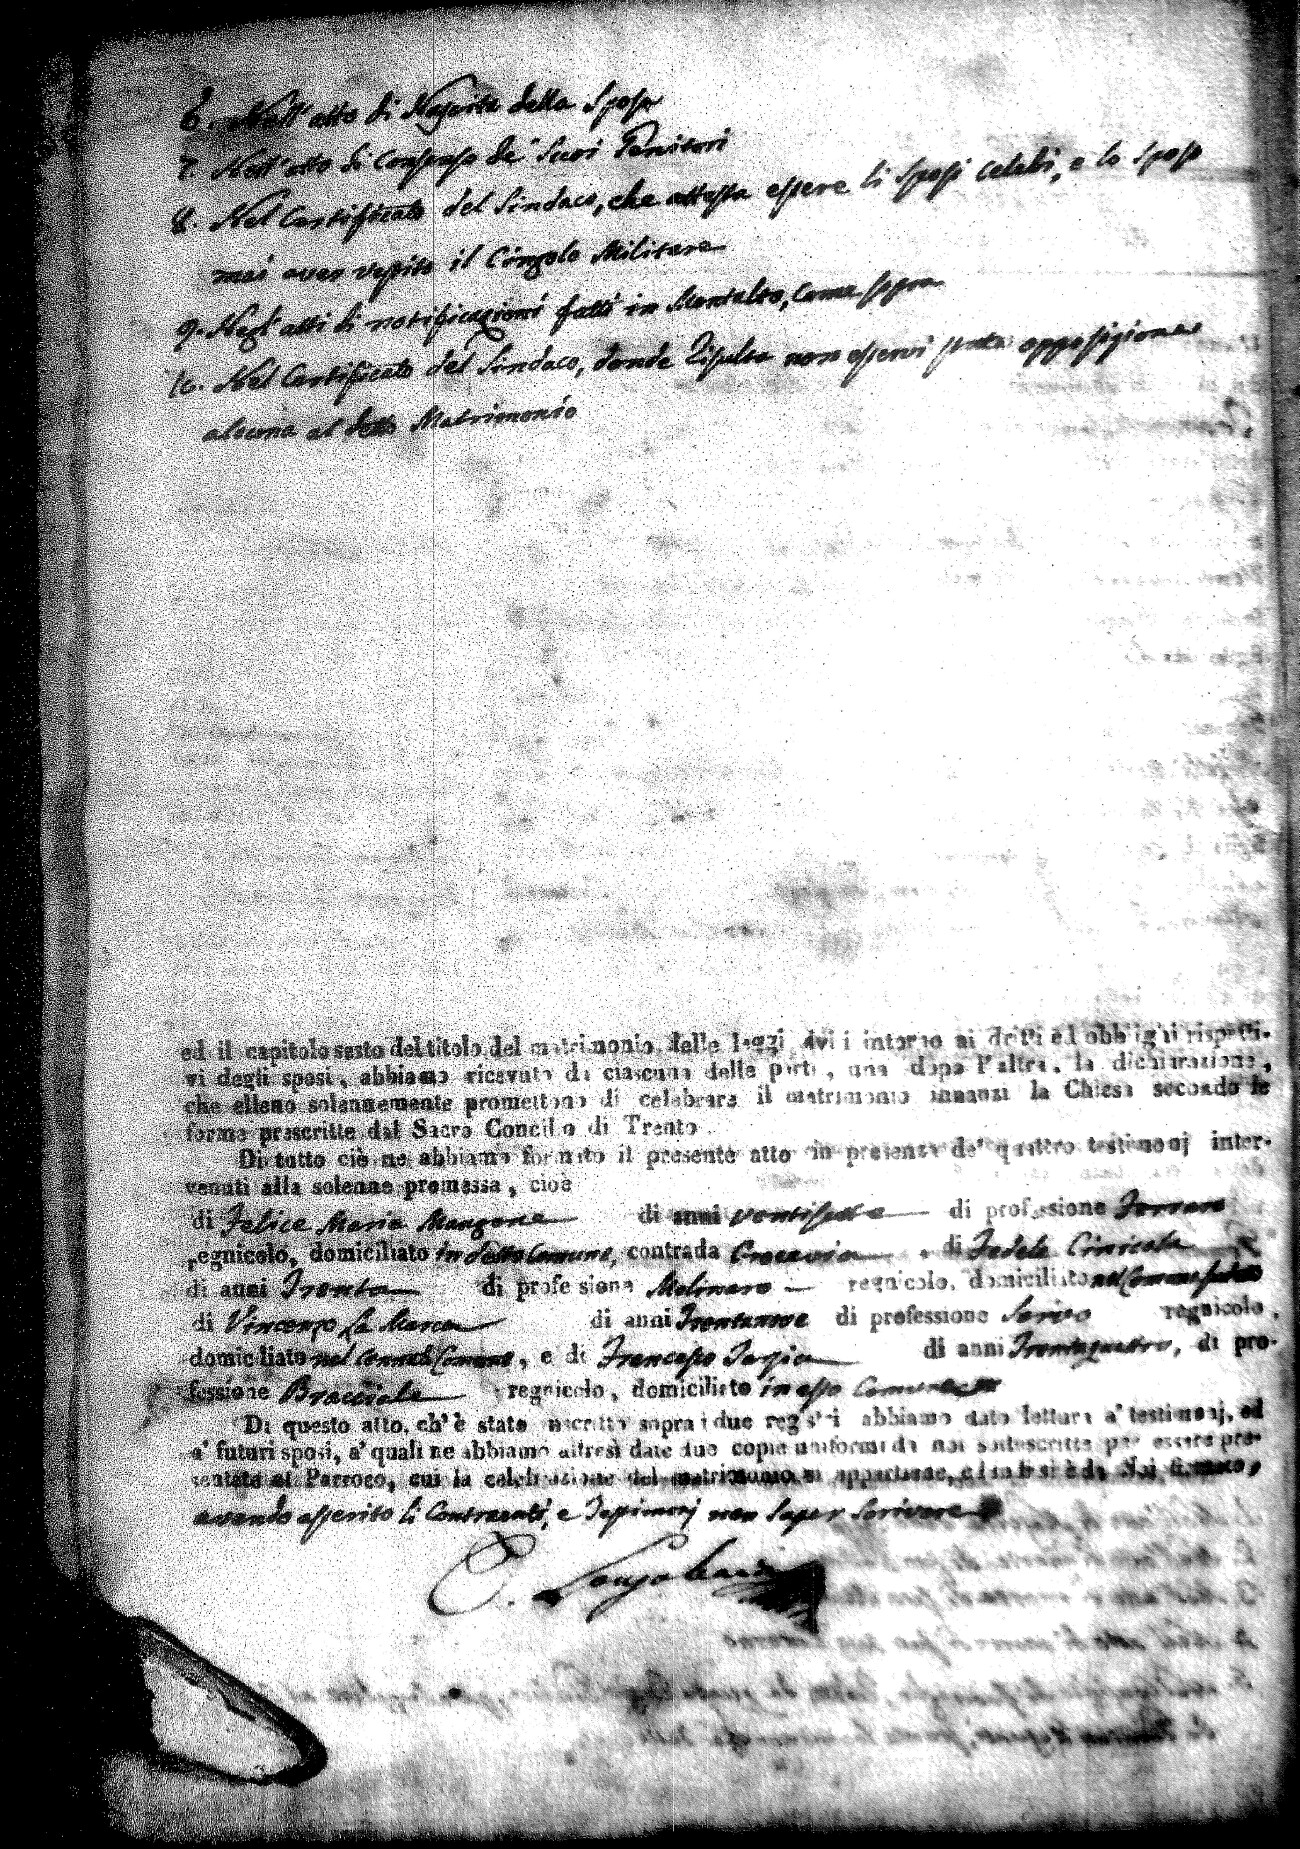 6. Nell'atto di Nascita della Sposa
7. Nell'atto di Consenso de' Suoi Genitori
8. Nel Certificato del Sindaco, che attesta essere li Sposi celibi, e lo Sposo
mai aver vestito il Cingolo Militare
9. Negl'atti di notificazioni fatti in Montalto, come sopra
10. Nel Certificato del Sindaco, donde Risulta non esservi stata opposizione
alcuna al detto Matrimonio
ed il capitolo sesto del titolo del matrimonio delle leggi civili intorno ai dritti ed obblighi rispetti-
vi degli sposi, abbiamo ricevuto da ciascuna delle parti, una dopo l'altra, la dichiarazione,
che elleno solennemente promettono di celebrare il matrimonio innanzi la Chiesa secondo le
forme prescritte dal Sacro Concilio di Trento.
Di tutto ciò ne abbiamo formato il presente atto in presenza de' quattro testimonj inter-
venuti alla solenne promessa, cioè
di Felice Maria Mangone di anni ventisette di professione Ferraro
regnicolo, domiciliato in detto Comune, contrada , di Fedele
di anni Trenta di professione Molinaro regnicolo, domiciliato nel Comune
di Vincenzo La Marca di anni Trentanove di professione Servo regnicolo,
domiciliato nel Comune, e di Francesco di anni Trentaquattro, di pro-
fessione Bracciale regnicolo, domiciliato in esso Comune
Di questo atto, ch'è stato inscritto sopra i due registri abbiamo dato lettura a' testimonj, ed
a' futuri sposi, a' quali ne abbiamo altresì date due copie uniformi da noi sottoscritte per essere pre-
sentate al Parroco, cui la celebrazione del matrimonio si appartiene, ed indi si è da Noi firmato,
avendo asserito li Contraenti, e Testimonj non saper Scrivere